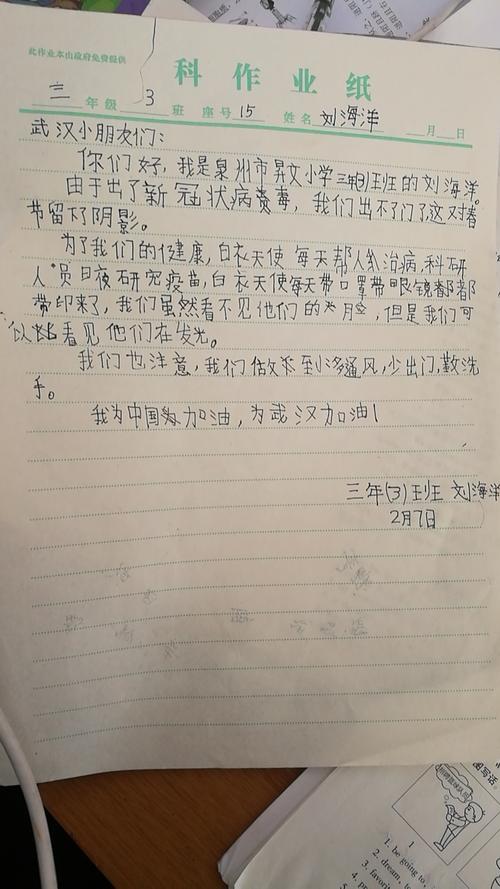 此作业本由政府免费提供
科作业纸
三年级 3班 座号15 姓名刘海洋 月 日
武汉小朋友们：
你们好，我是泉州市昇文小学三年(3)班的刘海洋。
由于出了新冠状病毒，我们出不了门了，这对春
节留下了阴影。
为了我们的健康，白衣天使每天帮人们治病，科研
人员日夜研究疫苗，白衣天使每天带口罩带眼镜都
带印来了，我们虽然看不见他们的脸，但是我们可
以看见他们在发光。
我们也注意，我们做到多通风，少出门，勤洗
手。
我为中国加油，为武汉加油！
三年(3)班 刘海洋
2月7日
图写话。
1
1. be going to
2. dream,
3. favorit
4.